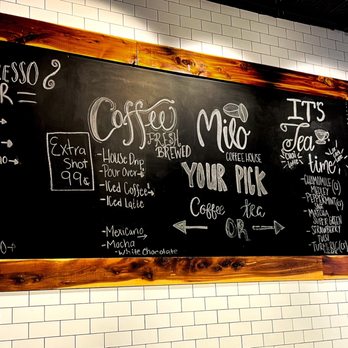 ESSO
R
Extra
Shot
99¢
Coffee
FRESH
BREWED
- House Drip
- Pour Over
- Iced Coffee
- Iced Latte
- Mexicano
- Mocha
- White Chocolate
Milo
COFFEE HOUSE
YOUR PICK
Coffee tea
OR
IT'S
Tea
time
- CHAMOMILE
MEDLEY
- PEPPERMINT
- MATCHA
- GREEN
- STRAWBERRY